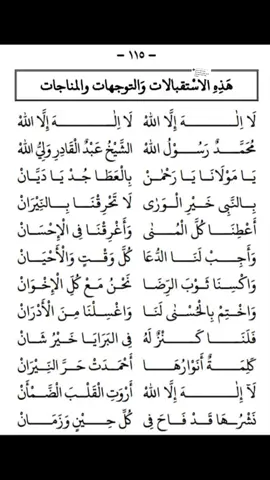 - ١١٥ -
هَذِهِ الاسْتقبالات وَالتوجهات والمناجات
لَا اِلٰـهَ إِلَّا اللهُ لَا اِلٰـهَ إِلَّا اللهُ
مُحَمَّـدٌ رَسُـوْلُ اللهِ الشَّيْخُ عَبْدُ الْقَادِرِ وَلِيُّ اللهِ
يَـا مَـوْلَانَا يَـا رَحْمٰـنْ بِـالْعَطَـا جُـدْ يَـا دَيَّـانْ
بِـالنَّبِي خَيْـرِ الْـوَرٰى لَا تَحْـرِقْنَـا بِـالنِّيْـرَانْ
أَعْطِنَـا كُـلَّ الْمُـنٰى وَأَغْرِقْنَـا فِى الْإِحْسَانْ
وَأَجِـبْ لَنَـا الدُّعَا كُلَّ وَقْتٍ وَالْأَحْيَانْ
وَاكْسِنَا ثَوْبَ الرِّضَا نَحْنُ مَعْ كُلِّ الْإِخْوَانْ
وَاخْتِمْ بِالْحُسْنٰى لَنَا وَاغْسِلْنَا مِنَ الْأَدْرَانْ
فَلَنَـا كَـنْزٌ لَهُ فِى الْبَرَايَا خَيْرُ شَانْ
كَلِمَـةٌ أَنْوَارُهَـا أَخْمَدَتْ حَرَّ النِّيْرَانْ
لَآ اِلٰـهَ إِلَّا اللهُ أَرْوَتِ الْقَلْبَ الضَّمْأَنْ
نَشْرُهَـا قَـدْ فَـاحَ فِى كُلِّ حِيْنٍ وَزَمَانْ